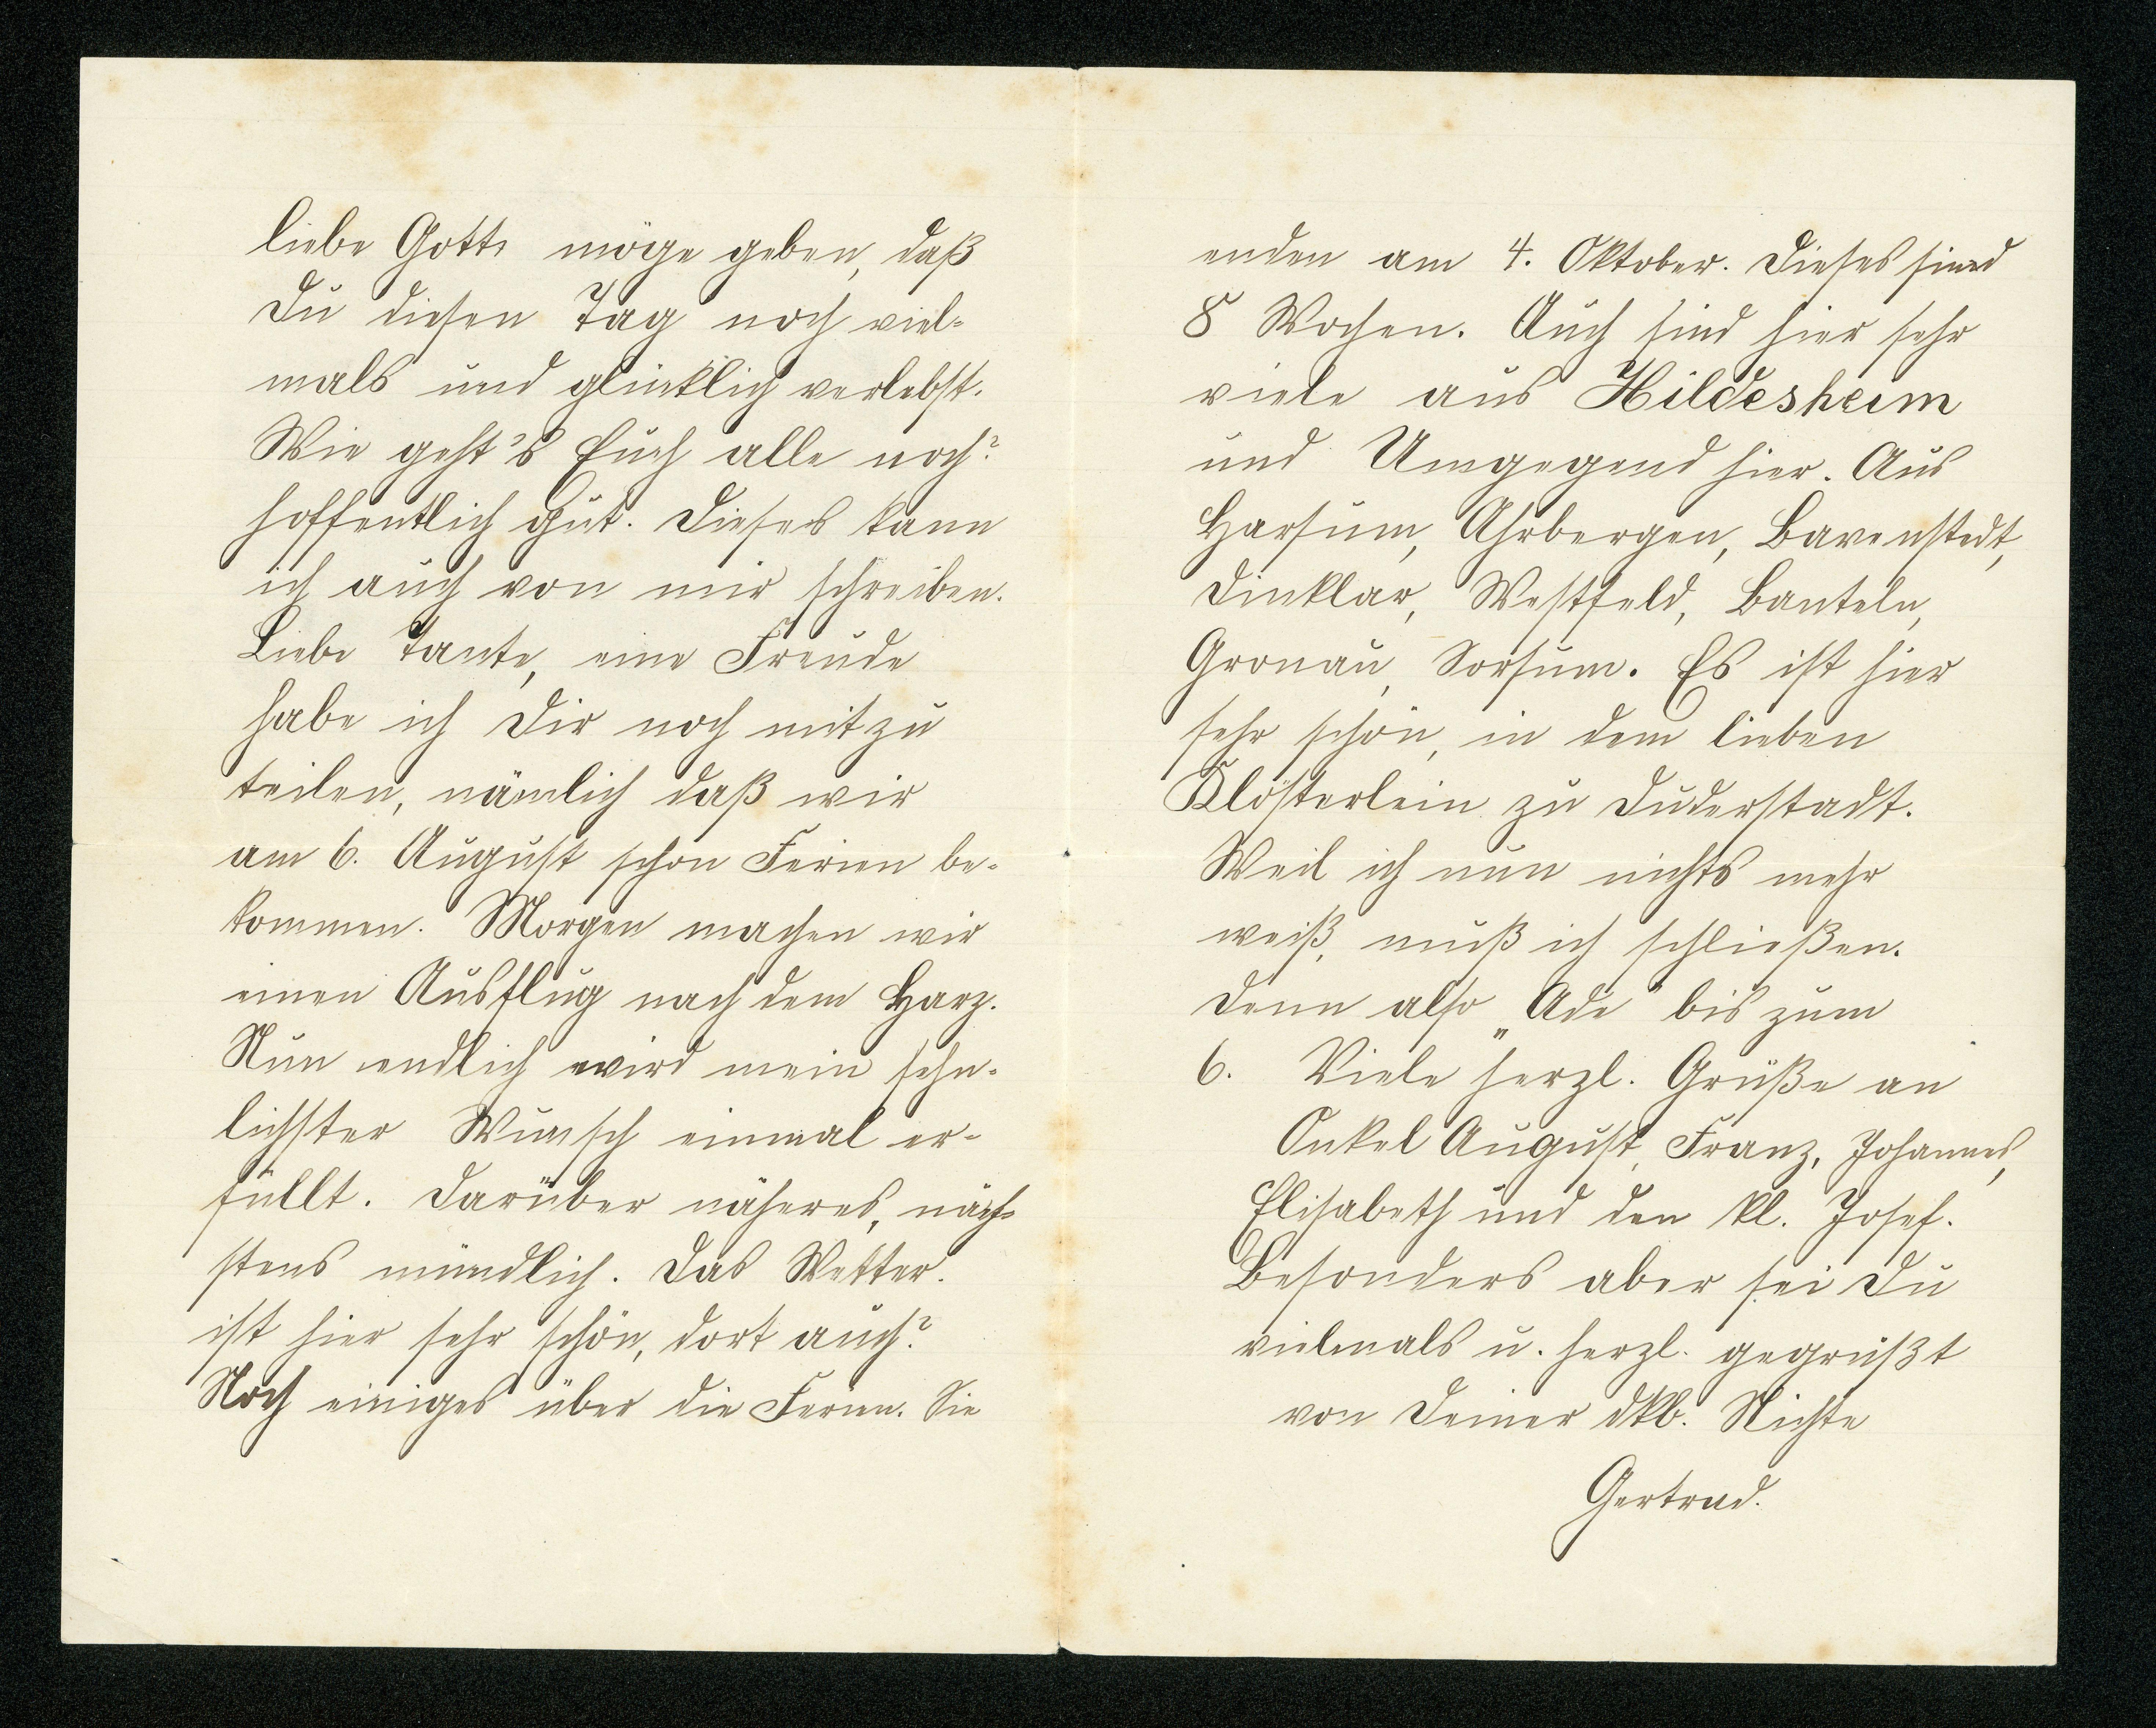 liebe Gott, möge geben, daß
Du diesen Tag noch viel-
mals und glücklich verlebst.
Wie geht's Euch alle noch?
hoffentlich gut. Dieses kann
ich auch von mir schreiben.
Liebe Tante, eine Freude
habe ich Dir noch mitzu
teilen, nämlich daß wir
am 6. August schon Ferien be-
kommen. Morgen machen wir
einen Ausflug nach dem Harz.
Nun endlich wird mein sehn-
lichster Wunsch einmal er-
füllt. Darüber näheres, näch-
stens mündlich. Das Wetter.
ist hier sehr schön, dort auch?
Noch einiges über die Ferien. Sie
enden am 4. Oktober. Dieses sind
8 Wochen. Auch sind hier sehr
viele aus Hildesheim
und Umgegend hier. Aus
Harsum, Ahrbergen, Bavenstedt,
Dinklar, Westfeld, Banteln,
Gronau, Sorsum. Es ist hier
sehr schön, in dem lieben
Klösterlein zu Duderstadt.
Weil ich nun nichts mehr
weiß, muß ich schließen.
Denn also „Ade" bis zum
6. Viele herzl. Grüße an
Onkel August, Franz, Johannes,
Elisabeth und den kl. Josef.
Besonders aber sei Du
vielmals u. herzl. gegrüßt
von Deiner dkb. Nichte
Gertrud.